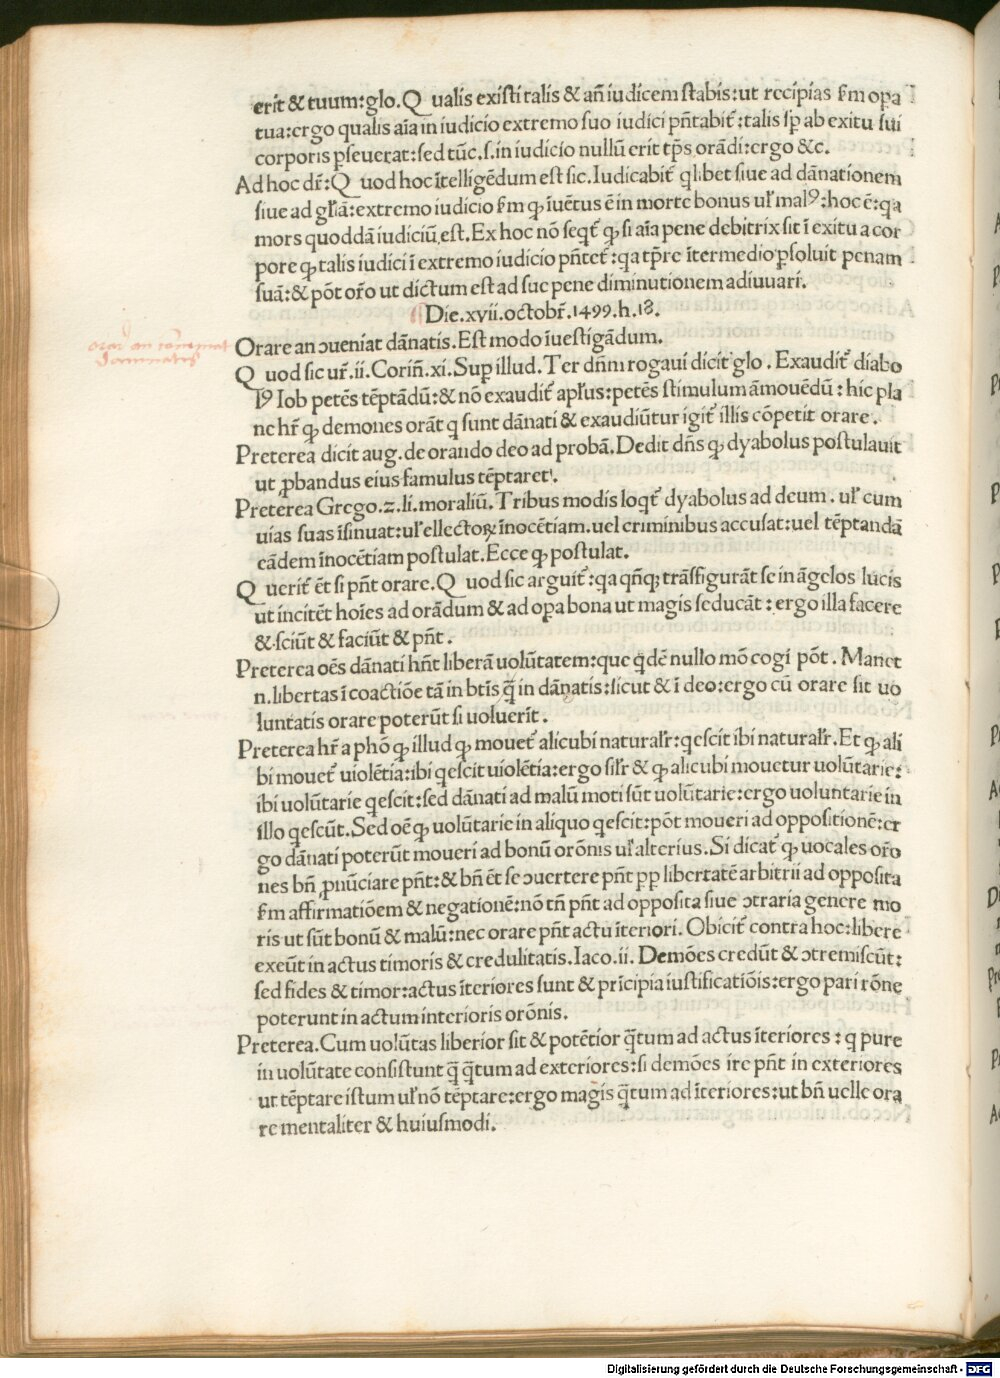 erit & tuum:glo. Q ualis existi talis & añ iudicem stabis:ut recipias ẜm opa
tua:ergo qualis aĩa in iudicio extremo suo iudici pñtabit̃:talis sp̱ ab exitu sui
corporis ꝑseuerat:sed tũc.s.in iudicio nullũ erit tp̃s orãdi:ergo &c.
Ad hoc dr̃:Q uod hoc ĩtelligẽdum est sic.Iudicabit̃ qlibet siue ad dãnationem
siue ad gl̃iã:extremo iudicio ẜm ꝙ ĩuẽtus ẽ in morte bonus ul̃ malꝰ:hoc ẽ:qa
mors quoddã iudiciũ est.Ex hoc nõ seqt̃ ꝙ si aĩa pene debitrix sit ĩ exitu a cor
pore ꝙ talis iudici ĩ extremo iudicio pñtet̃:qa tp̃re ĩtermedio ꝑsoluit penam
suã:& põt or̃o ut dictum est ad suc pene diminutionem adiuuari.
Die.xvii.octobr̃.1499.h.18.
Orare an ↄueniat dãnatis.Est modo ĩuestigãdum.
Q uod sic ur̃.ii.Coriñ.xi.Suꝑ illud.Ter dñm rogaui dicit glo. Exaudit̃ diabo
lꝰ Iob petẽs tẽptãdũ:& nõ exaudit̃ apl̃us:petẽs stimulum ãmouẽdũ: hic pla
ne hr̃ ꝙ demones orãt q sunt dãnati & exaudiũtur igit̃ illis cõpetit orare.
Preterea dicit aug.de orando deo ad probã.Dedit dñs ꝙ dyabolus postulauit
ut ꝓbandus eius famulus tẽptaret̃.
Preterea Grego.z.li.moraliũ.Tribus modis loqt̃ dyabolus ad deum. ul̃ cum
uias suas ĩsinuat:ul̃ ellectoꝝ ĩnocẽtiam.uel criminibus accusat:uel tẽptandã
eãdem ĩnocẽtiam postulat.Ecce ꝙ postulat.
Q uerit̃ ẽt si pñt orare.Q uod sic arguit̃:qa qñqꝫ trãsfigurãt se in ãgelos lucis
ut incitẽt hoĩes ad orãdum & ad opa bona ut magis seducãt:ergo illa facere
& sciũt & faciũt & pñt.
Preterea oẽs dãnati hñt liberã uolũtatem:que qdẽ nullo mõ cogi põt. Manet
n.libertas ĩ coactiõe tã in btĩs q̃ in dãnatis:sicut & ĩ deo:ergo cũ orare sit uo
luntatis orare poterũt si uoluerĩt.
Preterea hr̃ a phõ ꝙ illud ꝙ mouet̃ alicubi naturalr̃:qescit ibi naturalr̃.Et ꝙ ali
bi mouet̃ uiolẽtia:ibi qescit uiolẽtia:ergo sil̃r & ꝙ alicubi mouetur uolũtarie:
ibi uolũtarie qescit:sed dãnati ad malũ moti sũt uolũtarie:ergo uoluntarie in
illo qescũt.Sed oẽ ꝙ uolũtarie in aliquo qescit:põt moueri ad oppositionẽ:er
go dãnati poterũt moueri ad bonũ orõnis ul̃ alterius.Si dicat̃ ꝙ uocales orõ
nes bñ ꝓnũciare pñt:& bñ ẽt se ↄuertere pñt ꝓp libertatẽ arbitrii ad opposita
ẜm affirmatiõem & negationẽ:nõ tñ pñt ad opposita siue ↄtraria genere mo
ris ut sũt bonũ & malũ:nec orare pñt actu ĩteriori. Obicit̃ contra hoc:libere
exeũt in actus timoris & credulitatis.Iaco.ii. Demões credũt & ↄtremiscũt:
sed fides & timor:actus ĩteriores sunt & prĩcipia iustificatiõis:ergo pari rõne
poterunt in actum interioris orõnis.
Preterea.Cum uolũtas liberior sit & potẽtior q̃tum ad actus ĩteriores: q pure
in uolũtate consistunt q̃ q̃tum ad exteriores:si demões ire pñt in exteriores
ut tẽptare istum ul̃ nõ tẽptare:ergo magis q̃tum ad ĩteriores:ut bñ uelle ora
re mentaliter & huiusmodi.
Digitalisierung gefördert durch die Deutsche Forschungsgemeinschaft - DFG